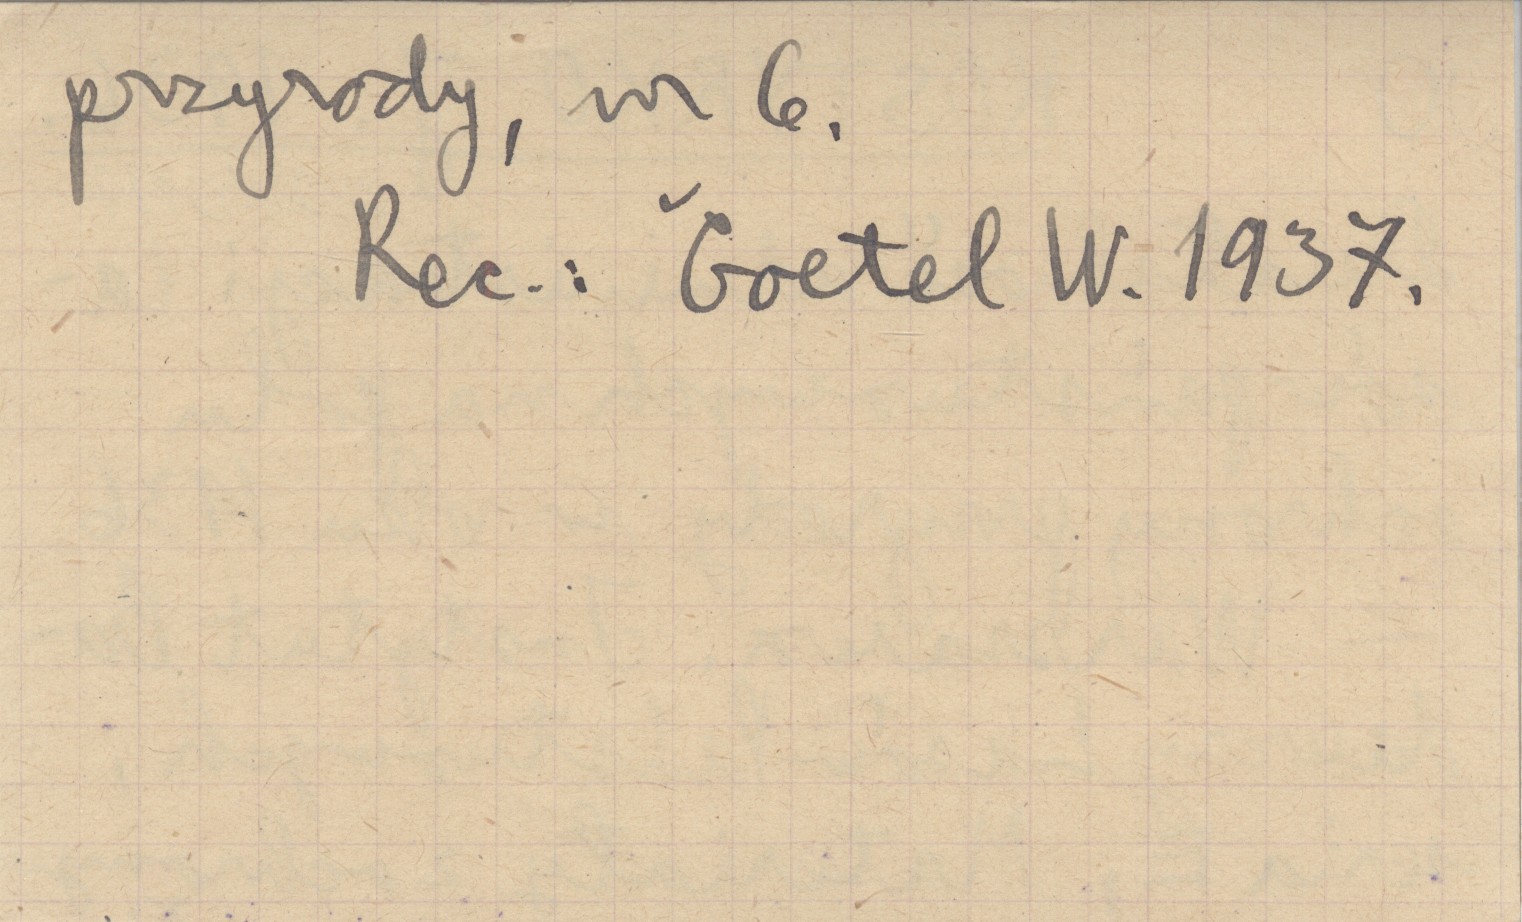 przyrody, nr 6.
Rec.: ˇGoetel W. 1937.